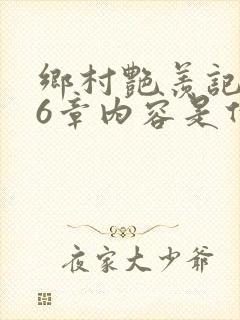 鄉村艷羨記
6章內容是
夜家大少爺